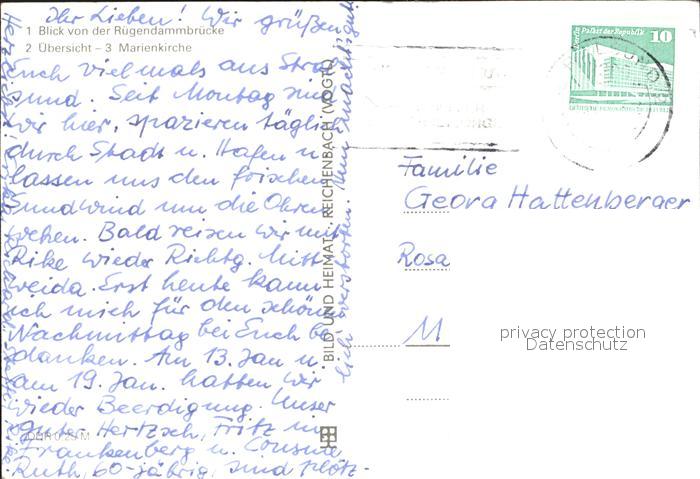 Ihr Lieben! Wir grüßen
1 Blick von der Rügendammbrücke
2 Übersicht – 3 Marienkirche
Euch vielmals aus Stral
sund. Seit Montag sind
wir hier, spazieren täglich
durch Stadt u. Hafen u.
lassen uns den frischen
Sundwind um die Ohren
wehen. Bald reisen wir mit
Rike wieder Richtg. Mitt
weida. Erst heute kann
ich mich für den schönen
Nachmittag bei Euch be
danken. Am 13. Jan. u.
am 19. Jan. hatten wir
wieder Beerdigung. Unser
guter Hertzsch, Fritz in
Frankenberg u. Cousine
Ruth, 60-jährig, sind plötz-
lich verstorben.
BILD UND HEIMAT REICHENBACH (VOGTL)
Berlin, Palast der Republik
10
Familie
Georg Hattenberger
Rosa
M
privacy protection
Datenschutz